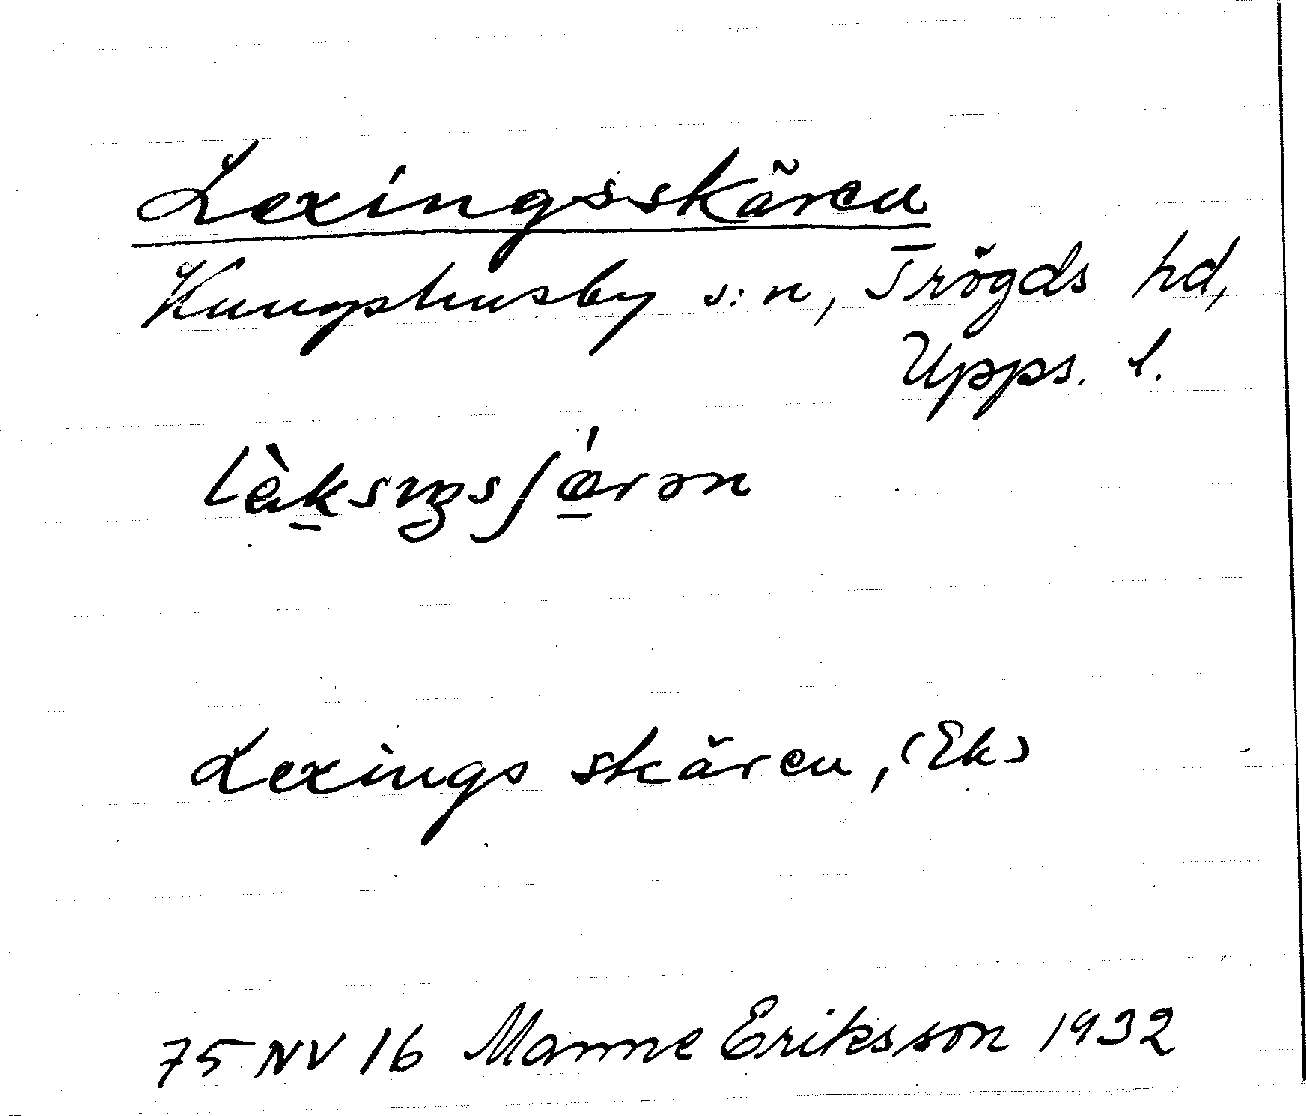 Lexingsskären
Kungshusby s:n, Trögds hd,
Upps. l.
lèksıŋsʃǽrən
Lexings skären, (Ek)
75 NV 16 Manne Eriksson 1932